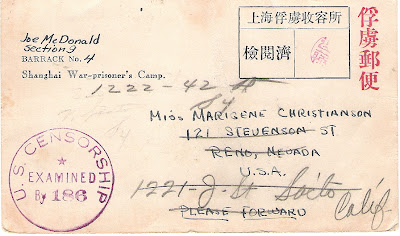 Joe McDonald
Section 3
BARRACK No. 4
Shanghai War-prisoner's Camp.
上海俘虜収容所
檢閱濟
俘虜郵便
1222-42
Miss Marigene Christianson
121 Stevenson St
Reno, Nevada
U.S.A.
Please Forward
1221-J. St
Calif
U.S. CENSORSHIP
EXAMINED
By 186